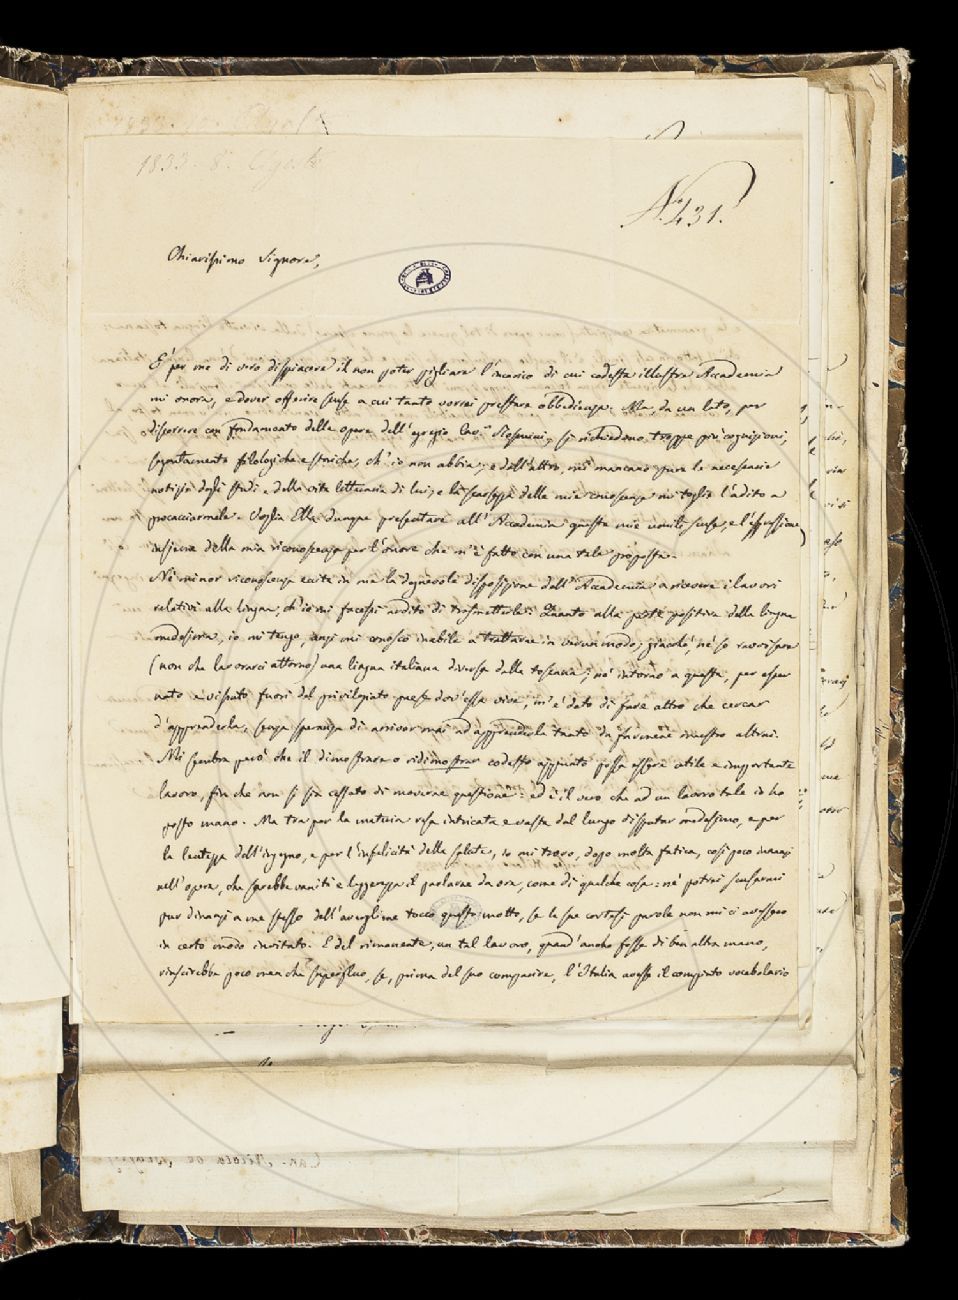 1833. 8. Agosto
N.° 431.
Chiarissimo Signore,
È per me di vero dispiacere il non poter pigliare l'incarico di cui codesta illustre Accademia
mi onora, e dover offerire scuse a cui tanto vorrei prestare obbedienza. Ma, da un lato, per
discorrere con fondamento delle opere dell'egregio Cav.r Rosmini, si richiedono troppe più cognizioni,
segnatamente filologiche e storiche, ch'io non abbia; e dall'altro, mi mancano pure le necessarie
notizie degli studi e della vita letteraria di lui; e la scarsezza delle mie conoscenze mi toglie l'adito a
procacciarmele. Voglia Ella dunque presentare all'Accademia queste mie umili scuse, e l'espressione
insieme della mia riconoscenza per l'onore che m'è fatto con una tale proposta.
Nè minor riconoscenza eccita in me la degnevole disposizione dell'Accademia a ricevere i lavori
relativi alla lingua, ch'io mi facessi ardito di trasmetterle. Quanto alla parte positiva della lingua
medesima, io mi tengo, anzi mi conosco inabile a trattarne in verun modo; giacchè, nè so ravvisare
(non che lavorarci attorno) una lingua italiana diversa dalla toscana; nè intorno a questa, per esser
nato e vissuto fuori del privilegiato paese dov'essa vive, m'è dato di fare altro che cercar
d'apprenderla, senza speranza di arrivar mai ad apprenderla tanto da farmene maestro altrui.
Mi sembra però che il dimostrare o ridimostrar codesto appunto possa essere utile e importante
lavoro, fin che non si sia cessato di moverne questione: ed è il vero che ad un lavoro tale io ho
posto mano. Ma tra per la materia resa intricata e vasta dal lungo disputar medesimo, e per
la lentezza dell'ingegno, e per l'infelicità della salute, io mi trovo, dopo molta fatica, così poco innanzi
nell'opera, che sarebbe vanità e leggerezza il parlarne da ora, come di qualche cosa: nè potrei scusarmi
pur dinanzi a me stesso dell'averglime tocco questo motto, se le sue cortesi parole non mi ci avessero
in certo modo invitato. E del rimanente, un tal lavoro, quand'anche fosse di ben altra mano,
riuscirebbe poco men che superfluo, se, prima del suo comparire, l'Italia avesse il compiuto vocabolario